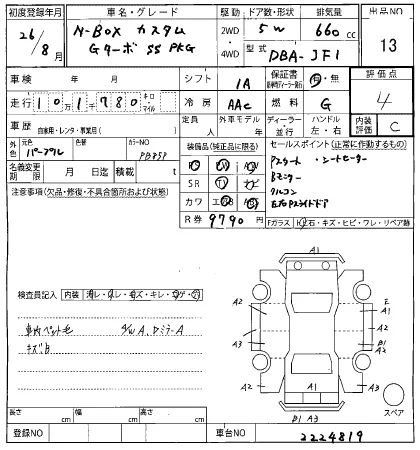 初度登録年月 車名・グレード 駆動 ドア数・形状 排気量 出品NO
26/8月 N-BOX カスタム Gターボ SS PKG 2WD 4WD 5W 660 cc 13
型式 DBA-JF1
車検 年 月 シフト IA 保証書 有・無 評価点
走行 101780 キロ・マイル 冷房 AAC 燃料 G 4
車歴 自家用・レンタ・事業用 定員 人 外車モデル 年 ディーラー 並行 ハンドル 左・右 内装 C
外色 元色 パープル 色替 カラーNO
装備品(純正品に限る) セールスポイント(正常に作動するもの)
名義変更期限 月 日迄 積載 t
SR
カワ
R券 9790 円
Pスタート ・シートヒーター
Bモニター
クルコン
左右Pスライドドア
注意事項(欠品・修復・不具合箇所および状態)
Fガラス 石・キズ・ヒビ・ワレ・リペア跡
検査員記入 内装
A1
A2
A2
A3
A2
A1
A2
B1
A2
A3
A2
A1
B1 A3
スペア
キズB
長さ cm 幅 cm 高さ cm
登録NO 車台NO 2224819